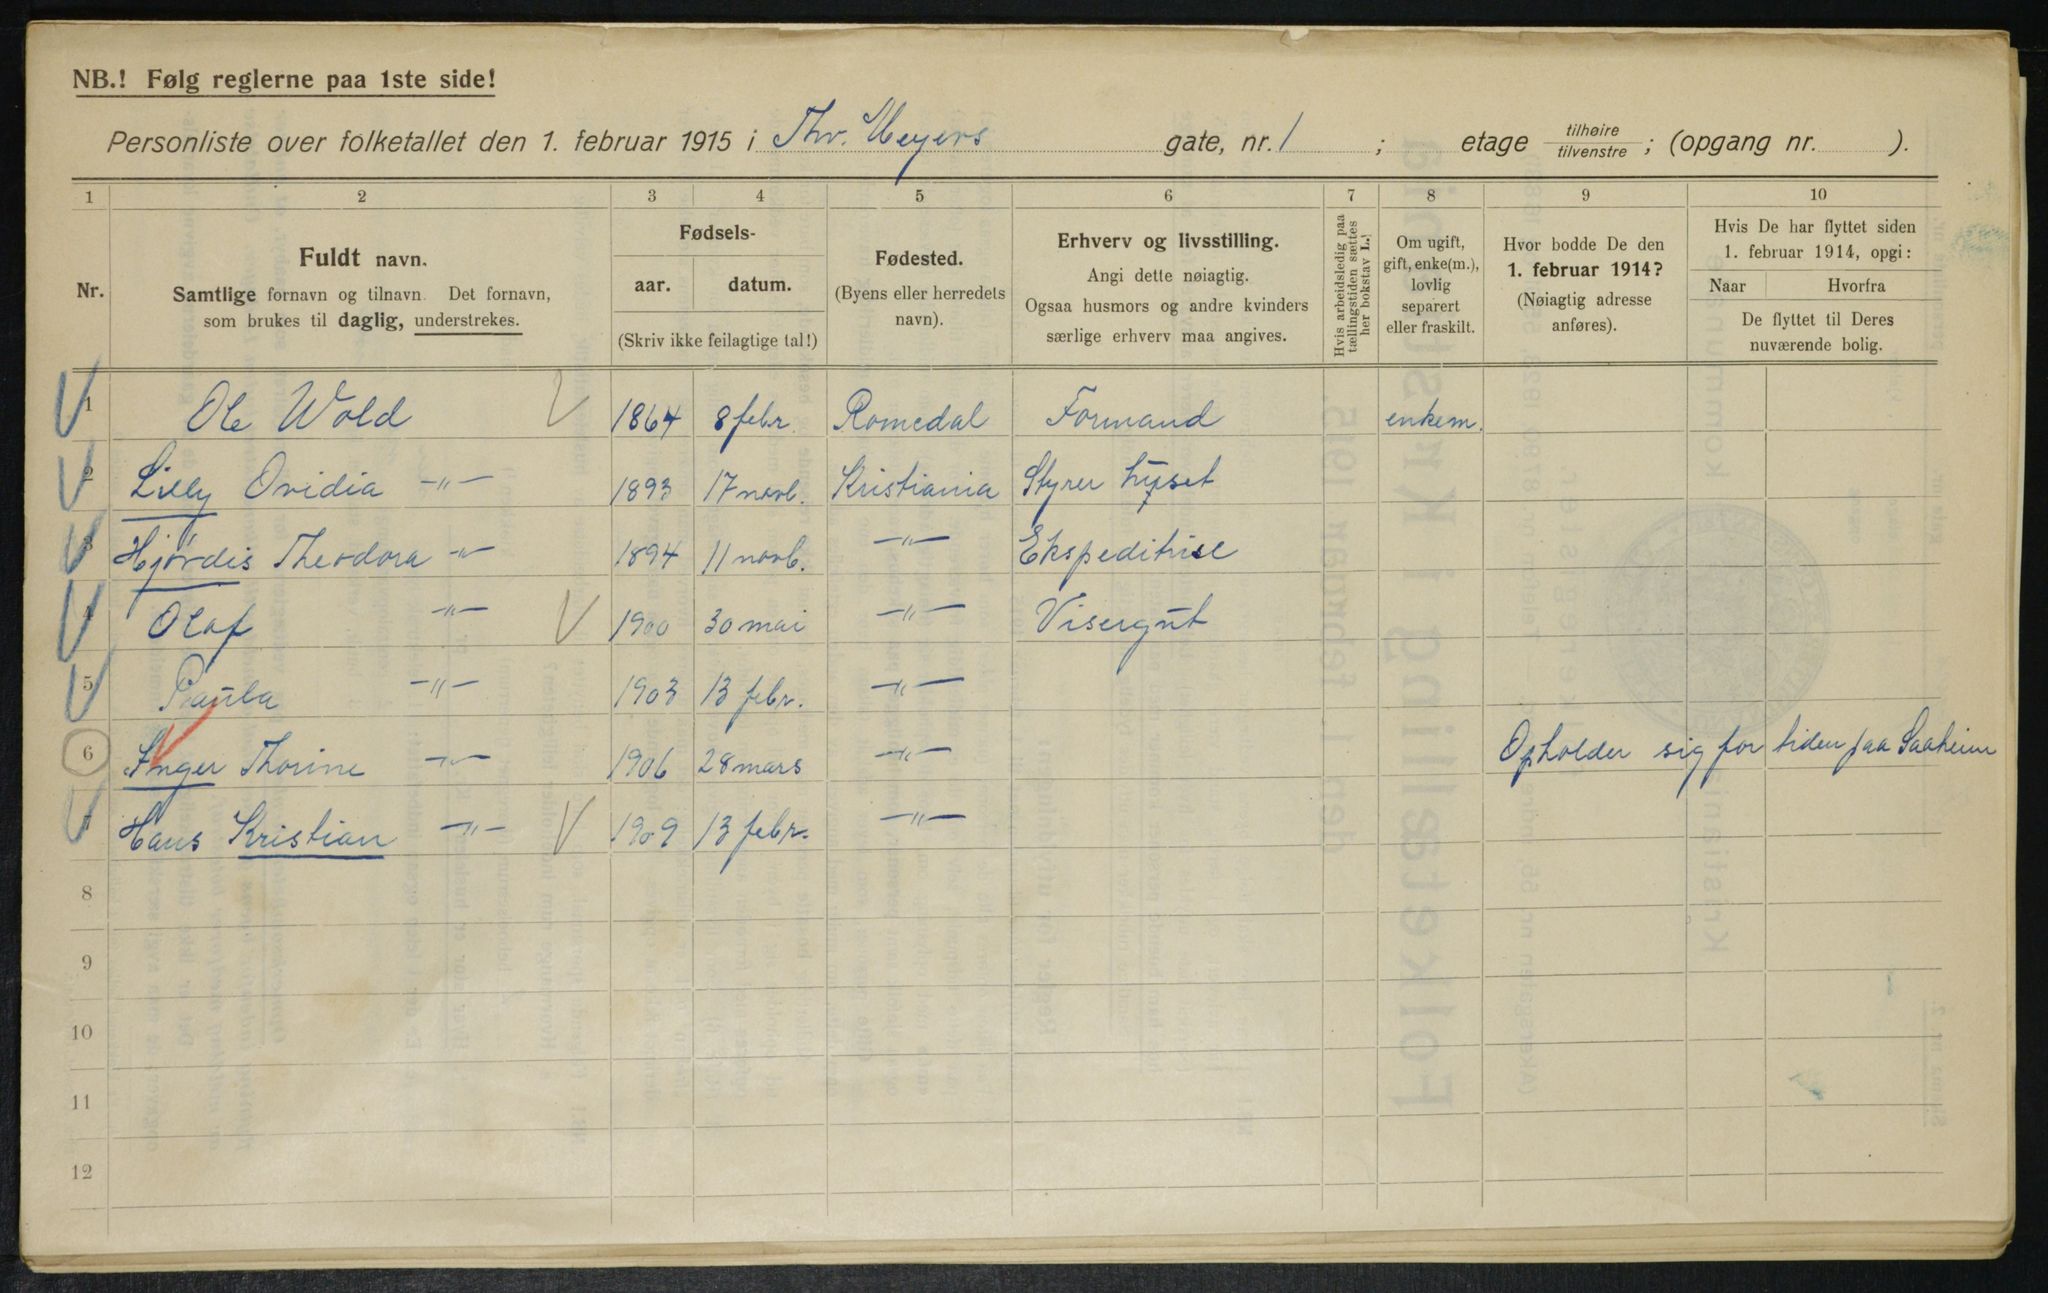 NB.! Følg reglerne paa 1ste side!
Personliste over folketallet den 1. februar 1915 i Thv. Meyers gate, nr. 1 ; etage tilhøire tilvenstre ; (opgang nr. ).
1 2 3 4 5 6 7 8 9 10
Nr.
Fuldt navn.
Samtlige fornavn og tilnavn. Det fornavn,
som brukes til daglig, understrekes.
Fødsels-
aar. datum.
(Skriv ikke feilagtige tal!)
Fødested.
(Byens eller herredets
navn).
Erhverv og livsstilling.
Angi dette nøiagtig.
Ogsaa husmors og andre kvinders
særlige erhverv maa angives.
Hvis arbeidsledig paa
tællingstiden sættes
her bokstav L.!
Om ugift,
gift, enke(m.),
lovlig
separert
eller fraskilt.
Hvor bodde De den
1. februar 1914?
(Nøiagtig adresse
anføres).
Hvis De har flyttet siden
1. februar 1914, opgi:
Naar Hvorfra
De flyttet til Deres
nuværende bolig.
1 Ole Wold 1864 8 febr. Romedal Formand enkem.
2 Lilly Ovidia -"- 1893 17 novb. Kristiania Styrer huset
3 Hjørdis Theodora -"- 1894 11 novb. -"- Ekspeditrise
4 Olaf -"- 1900 30 mai -"- Visergut
5 Paula -"- 1903 13 febr. -"-
6 Inger Thorine -"- 1906 28 mars -"- Opholder sig for tiden paa Saaheim
7 Hans Kristian -"- 1909 13 febr. -"-
8
9
10
11
12